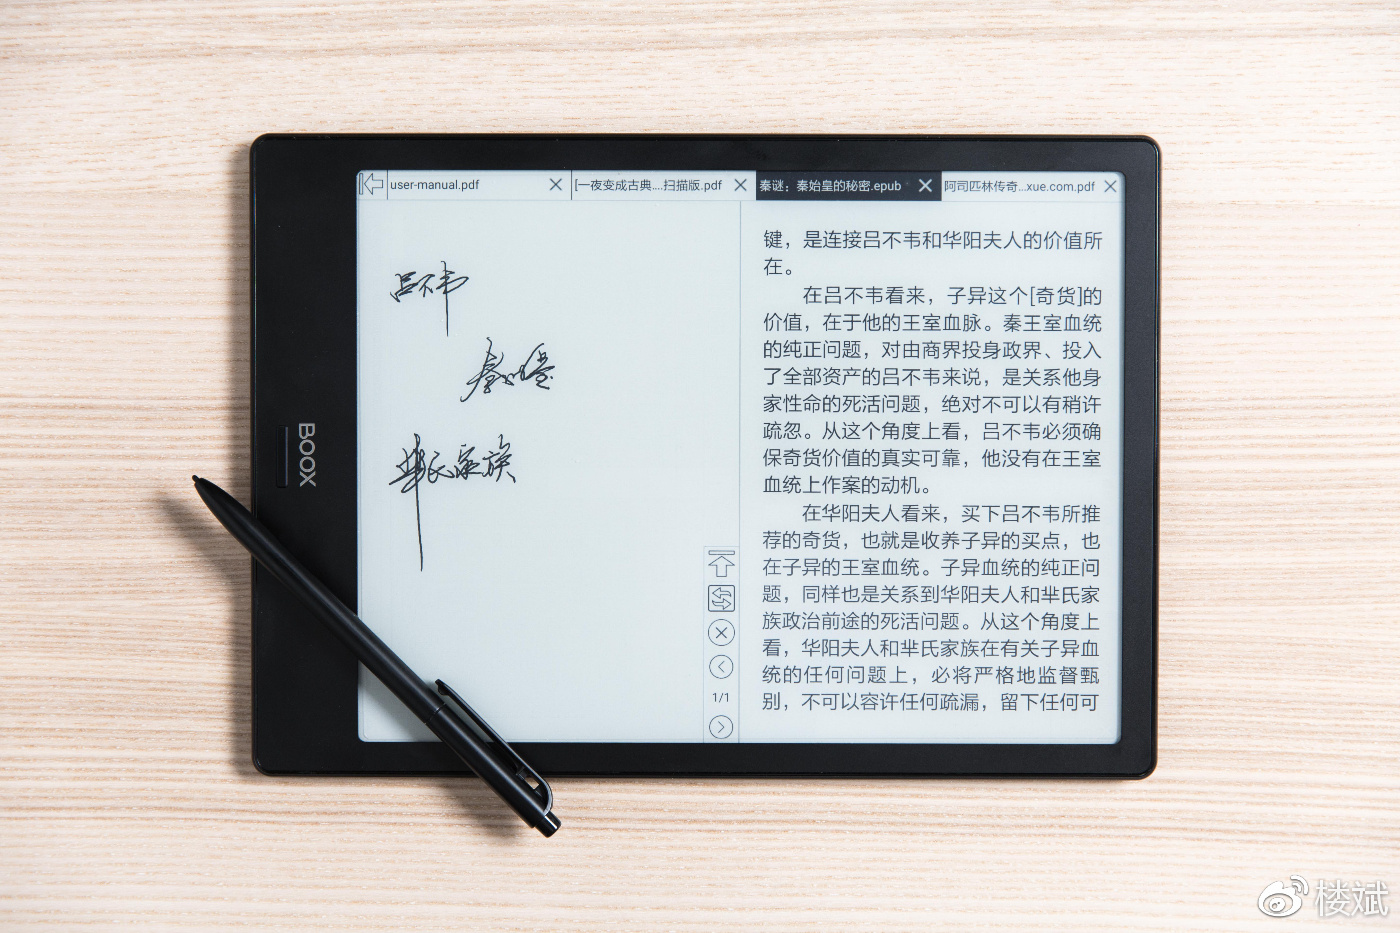 user-manual.pdf
[一夜变成古典....扫描版.pdf
秦谜：秦始皇的秘密.epub
阿司匹林传奇...xue.com.pdf
吕不韦
秦始皇
芈氏家族
1/1
键，是连接吕不韦和华阳夫人的价值所
在。
在吕不韦看来，子异这个[奇货]的
价值，在于他的王室血脉。秦王室血统
的纯正问题，对由商界投身政界、投入
了全部资产的吕不韦来说，是关系他身
家性命的死活问题，绝对不可以有稍许
疏忽。从这个角度上看，吕不韦必须确
保奇货价值的真实可靠，他没有在王室
血统上作案的动机。
在华阳夫人看来，买下吕不韦所推
荐的奇货，也就是收养子异的买点，也
在子异的王室血统。子异血统的纯正问
题，同样也是关系到华阳夫人和芈氏家
族政治前途的死活问题。从这个角度上
看，华阳夫人和芈氏家族在有关子异血
统的任何问题上，必将严格地监督甄
别，不可以容许任何疏漏，留下任何可
BOOX
楼斌